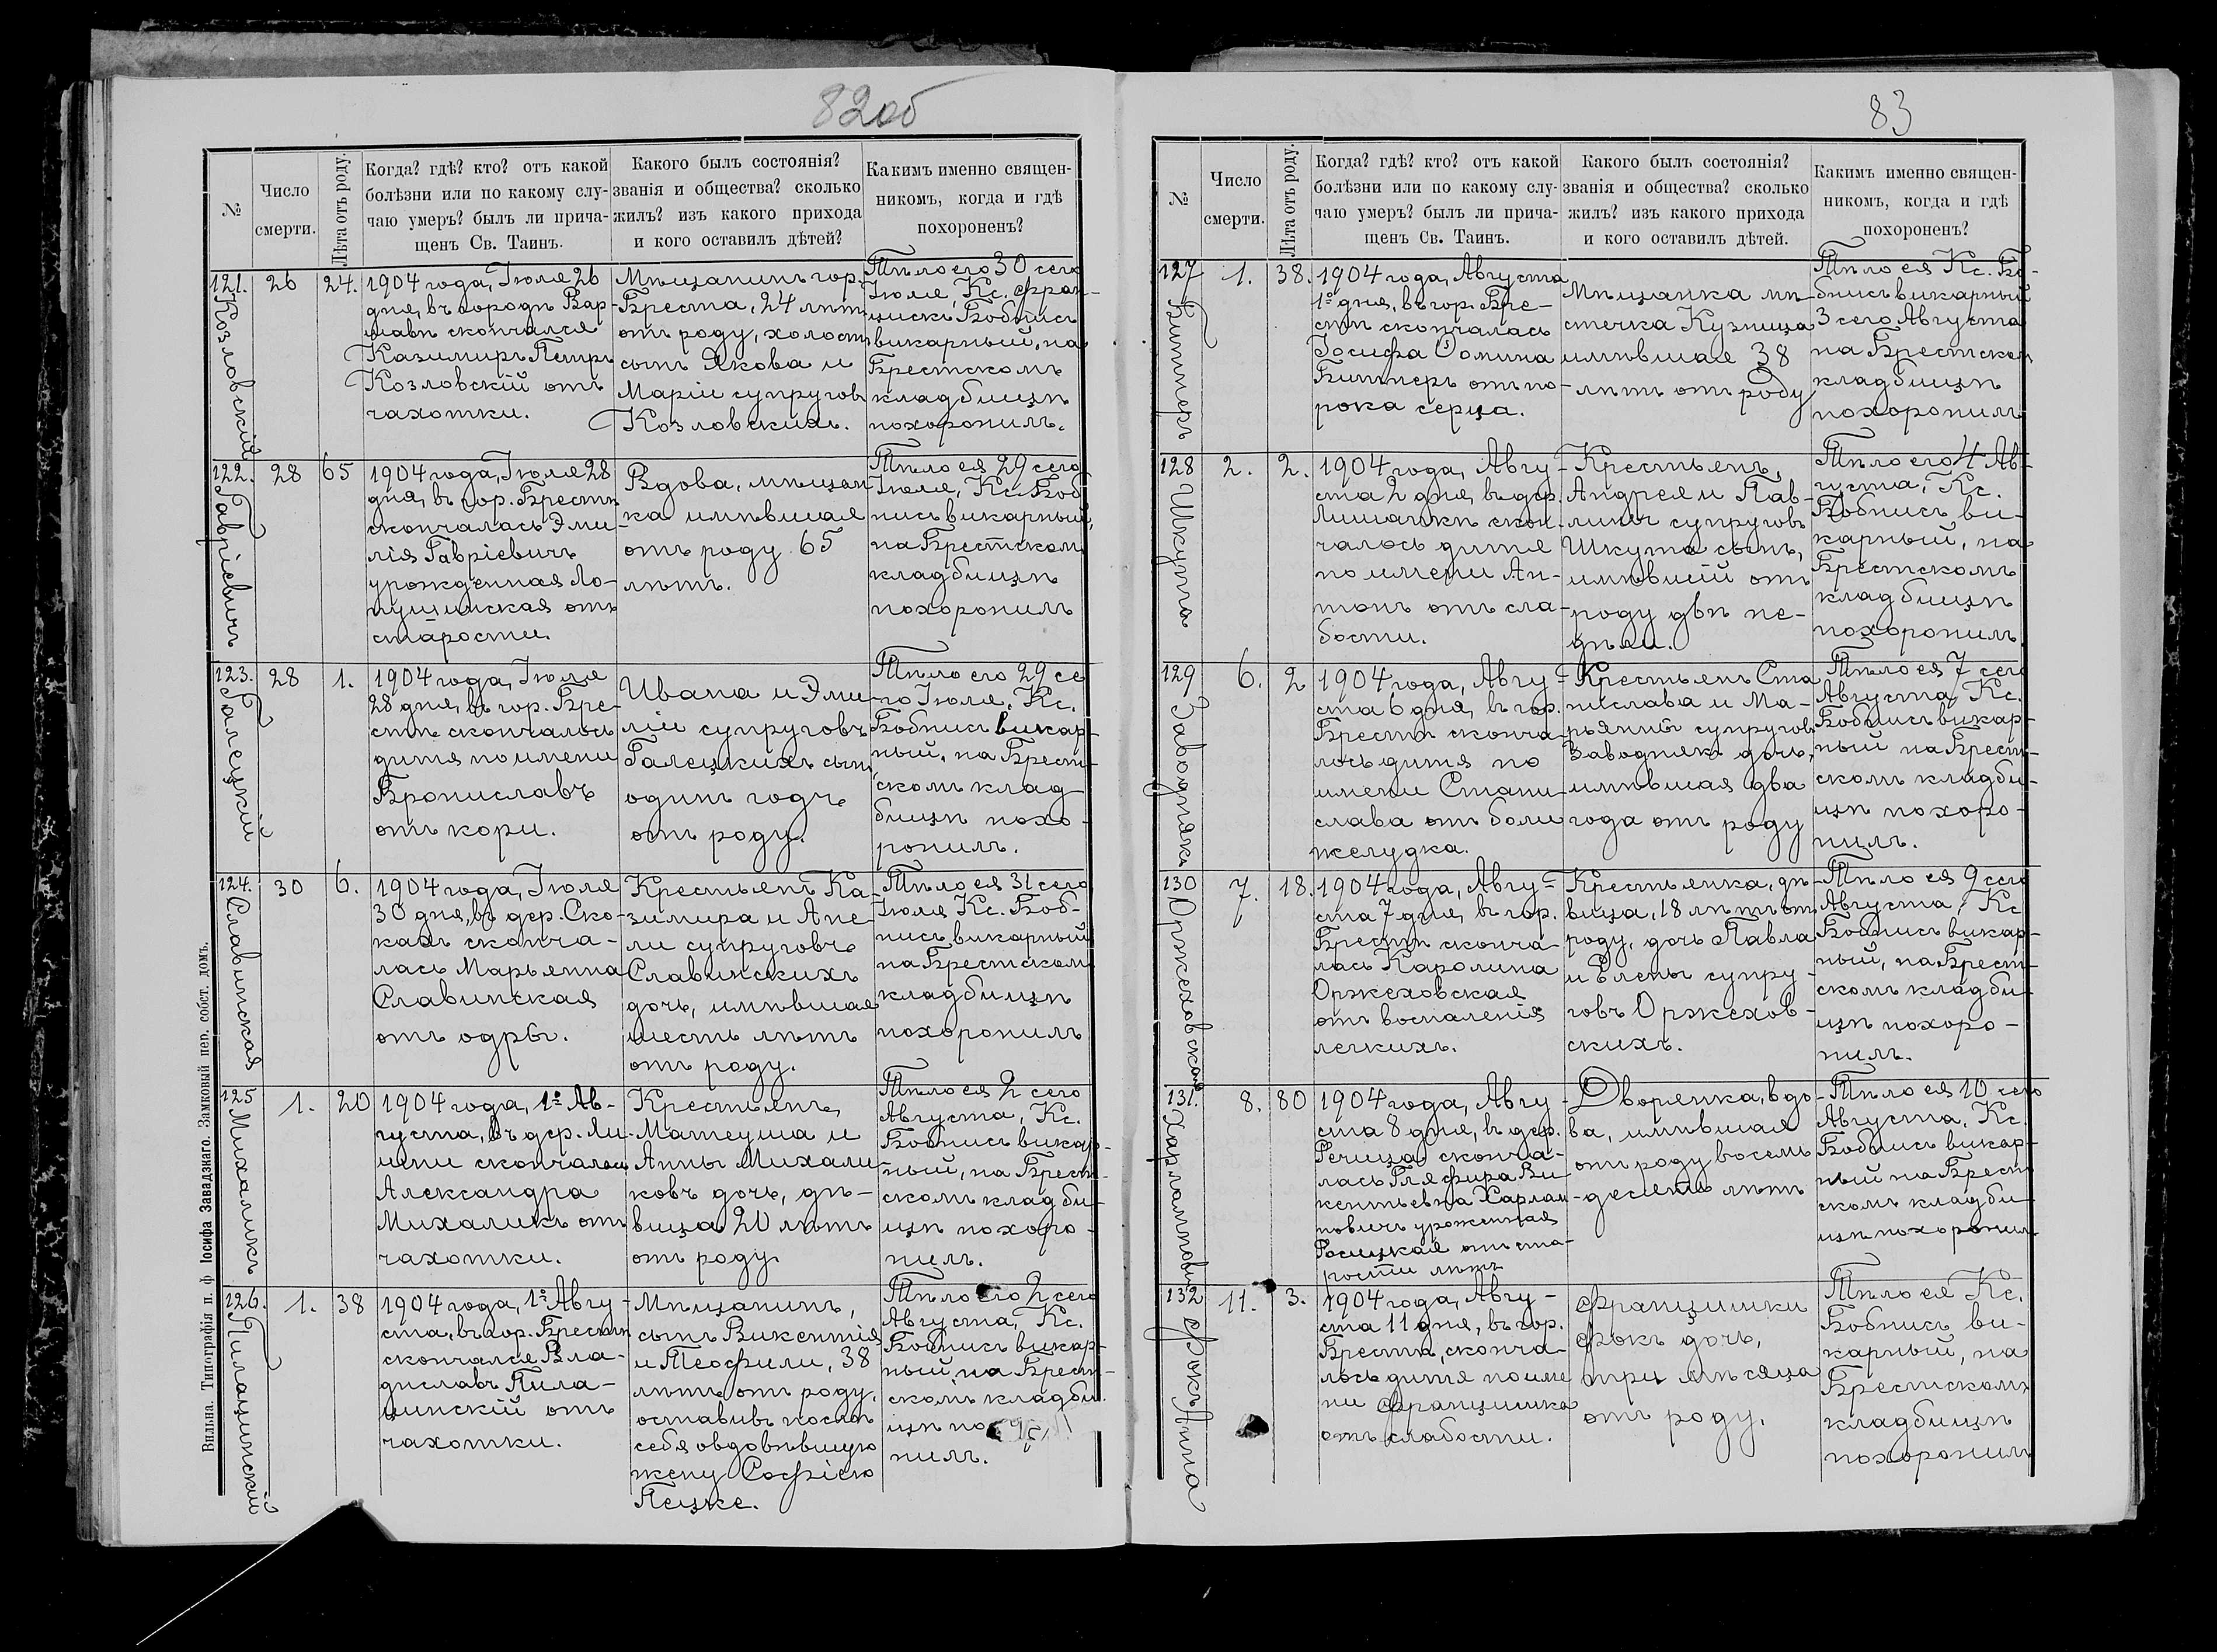 82об
№
Число
смерти.
Лѣта отъ роду.
Когда? гдѣ? кто? отъ какой
болѣзни или по какому слу-
чаю умеръ? былъ ли прича-
щенъ Св. Таинъ.
Какого былъ состоянія?
званія и общества? сколько
жилъ? изъ какого прихода
и кого оставилъ дѣтей?
Какимъ именно священ-
никомъ, когда и гдѣ
похороненъ?
121.
Козловскій
26
24.
1904 года, Іюля 26
дня, въ городѣ Вар-
шавѣ скончался
Казимиръ Петръ
Козловскій отъ
чахотки.
Мѣщанинъ гор.
Бреста, 24 лѣтъ
отъ роду, холостъ
сынъ Якова и
Маріи супруговъ
Козловскихъ.
Тѣло его 30 сего
Іюля, Кс. Фран-
цискъ Бобнисъ
викарный, на
Брестскомъ
кладбищѣ
похоронилъ.
122.
Гавріевичъ
28
65
1904 года, Іюля 28
дня, въ гор. Брестѣ
скончалась Эми-
лія Гавріевичъ
урожденная Ло-
пушинская отъ
старости.
Вдова, мѣщан
ка имѣвшая
отъ роду 65
лѣтъ.
Тѣло ея 29 сего
Іюля, Кс. Боб
нисъ викарный,
на Брестскомъ
кладбищѣ
похоронилъ
123.
Галецкій
28
1.
1904 года, Іюля
28 дня, въ гор. Бре-
стѣ скончалось
дитя по имени
Брониславъ
отъ кори.
Ивана и Эми
ліи супруговъ
Галецкихъ сынъ
одинъ годъ
отъ роду.
Тѣло его 29 се
го Іюля, Кс.
Бобнисъ викар-
ный, на Брест-
скомъ клад
бищѣ похо-
ронилъ.
124.
Славинская
30
6.
1904 года, Іюля
30 дня, въ дер. Ско-
кахъ сконча-
лась Марьянна
Славинская
отъ одры.
Крестьянъ Ка-
зимира и Анє
ли супруговъ
Славинскихъ
дочь, имѣвшая
шесть лѣтъ
отъ роду.
Тѣло ея 31 сего
Іюля Кс. Боб-
нисъ викарный
на Брестскомъ
кладбищѣ
похоронилъ
125
Михаликъ
1.
20
1904 года, 1го Ав-
густа, въ дер. Ли-
щи скончалась
Александра
Михаликъ отъ
чахотки.
Крестьянъ,
Матеуша и
Анны Михали
ковъ дочь, дѣ-
вица 20 лѣтъ
отъ роду
Тѣло ея 2 сего
Августа, Кс.
Бобнисъ викар-
ный, на Брест-
скомъ кладби-
щѣ похоро-
нилъ.
126.
Пилащинскій
1.
38
1904 года, 1го Авгу-
ста, въ гор. Брестѣ
скончался Вла-
диславъ Пила-
щинскій отъ
чахотки.
Мѣщанинъ,
сынъ Викентія
и Теофили, 38
лѣтъ отъ роду,
оставивъ послѣ
себя овдовѣвшую
жену Софію
Пецке.
Тѣло его 2 сего
Августа, Кс.
Бобнисъ викар-
ный, на Брест-
скомъ кладби
щѣ по
нилъ.
Вильна. Типографія п. ф. Іосифа Завадзкаго. Замковый пер. собст. домъ.
83
№
Число
смерти.
Лѣта отъ роду.
Когда? гдѣ? кто? отъ какой
болѣзни или по какому слу-
чаю умеръ? былъ ли прича-
щенъ Св. Таинъ.
Какого былъ состоянія?
званія и общества? сколько
жилъ? изъ какого прихода
и кого оставилъ дѣтей.
Какимъ именно священ-
никомъ, когда и гдѣ
похороненъ?
127
Биттеръ
1.
38.
1904 года, Августа
1го дня, въ гор. Бре-
стѣ скончалась
Іосифа Домина
Биттеръ отъ по-
рока серца.
Мѣщанка мѣ-
стечка Кузница
имѣвшая 38
лѣтъ отъ роду
Тѣло ея Кс. Бо-
бнисъ викарный
3 сего Августа
на Брестскомъ
кладбищѣ
похоронилъ
128
Шкута
2.
2.
1904 года, Авгу-
ста 2 дня, въ дер.
скон-
чалось дитя
по имени Ан-
тонъ отъ сла-
бости.
Крестьянъ,
Андрея и Пав-
лины супруговъ
Шкута сынъ,
имѣвшій отъ
роду двѣ не-
дѣли.
Тѣло его 4 Ав-
густа, Кс.
Бобнисъ ви-
карный, на
Брестскомъ
кладбищѣ
похоронилъ.
129
Заводнякъ
6.
2
1904 года, Авгу-
ста 6 дня, въ гор.
Брестѣ сконча-
лось дитя по
имени Стани-
слава отъ боли
желудка.
Крестьянъ Ста
нислава и Ма-
рьянны супруговъ
Заводнякъ дочь,
имѣвшая два
года отъ роду
Тѣло ея 7 сего
Августа, Кс.
Бобнисъ викар-
ный на Брест-
скомъ кладби-
щѣ похоро-
нилъ.
130
Оржеховская
7.
18.
1904 года, Авгу-
ста 7 дня, въ гор.
Брестѣ сконча-
лась Каролина
Оржеховская
отъ воспаленія
легкихъ.
Крестьянка, дѣ-
вица, 18 лѣтъ отъ
роду, дочь Павла
и Елены супру-
говъ Оржехов-
скихъ.
Тѣло ея 9 сего
Августа, Кс
Бобнисъ викар-
ный, на Брест-
скомъ кладби-
щѣ похоро-
нилъ.
131.
Харлампович
8.
80
1904 года, Авгу-
ста 8 дня, въ дер.
Речица сконча-
лась Глафира Ви
кентьевна Харлам-
повичъ уроженная
Росицкая отъ ста-
рости лѣтъ
Дворянка, вдо-
ва, имѣвшая
отъ роду восемь
десятъ лѣтъ
Тѣло ея 10 сего
Августа, Кс.
Бобнисъ викар-
ный на Брест
скомъ кладби-
щѣ похоронил.
132
Фокъ Анна
11.
3.
1904 года, Авгу-
ста 11 дня, въ гор.
Брестѣ, сконча-
лось дитя по име
ни Францишка
отъ слабости.
Францишки
Фокъ дочь,
три мѣсяца
отъ роду.
Тѣло ея Кс.
Бобнисъ ви-
карный, на
Брестскомъ
кладбищѣ
похоронилъ